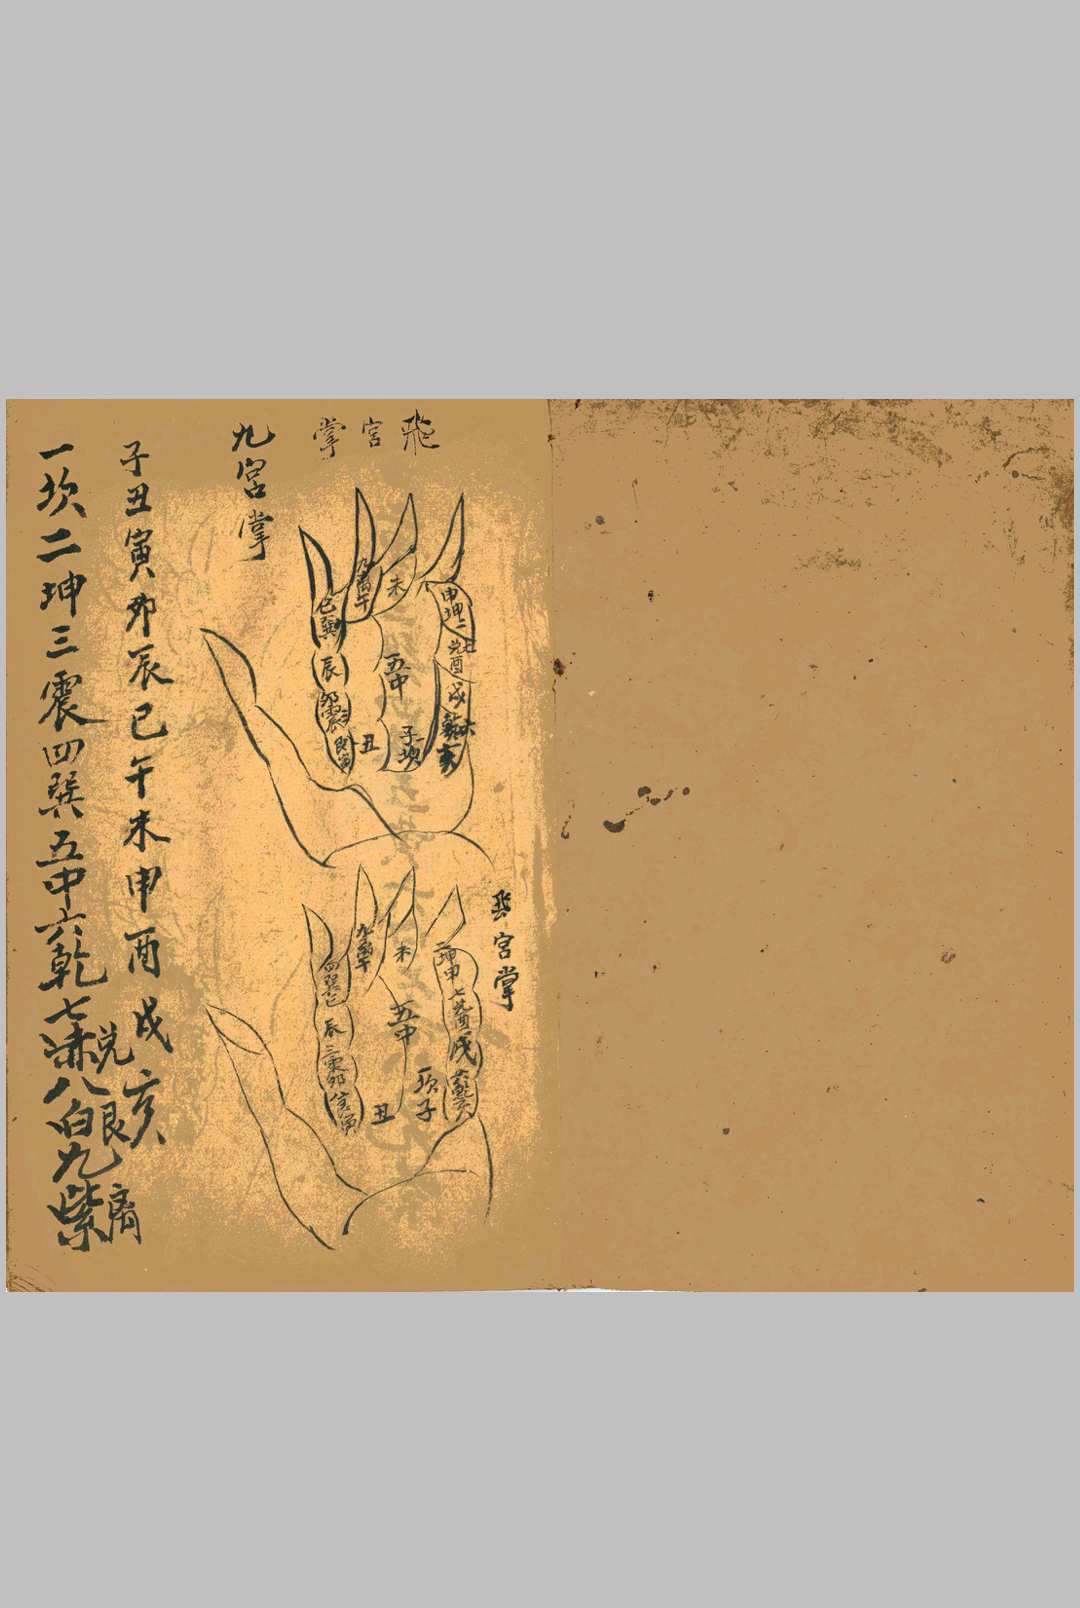 飛宮掌
申坤二
兌酉七
戌
乾六亥
未
五中
子坎一
九離午
丑
巳巽四
辰
卯震三
艮寅
飛宮掌
二坤申
七兌酉
戌
六乾亥
未
五中
一坎子
九離午
丑
四巽巳
辰
三震卯
九宮掌
子丑寅卯辰巳午未申酉戌亥
一坎二坤三震四巽五中六乾七赤兌八白艮九紫离